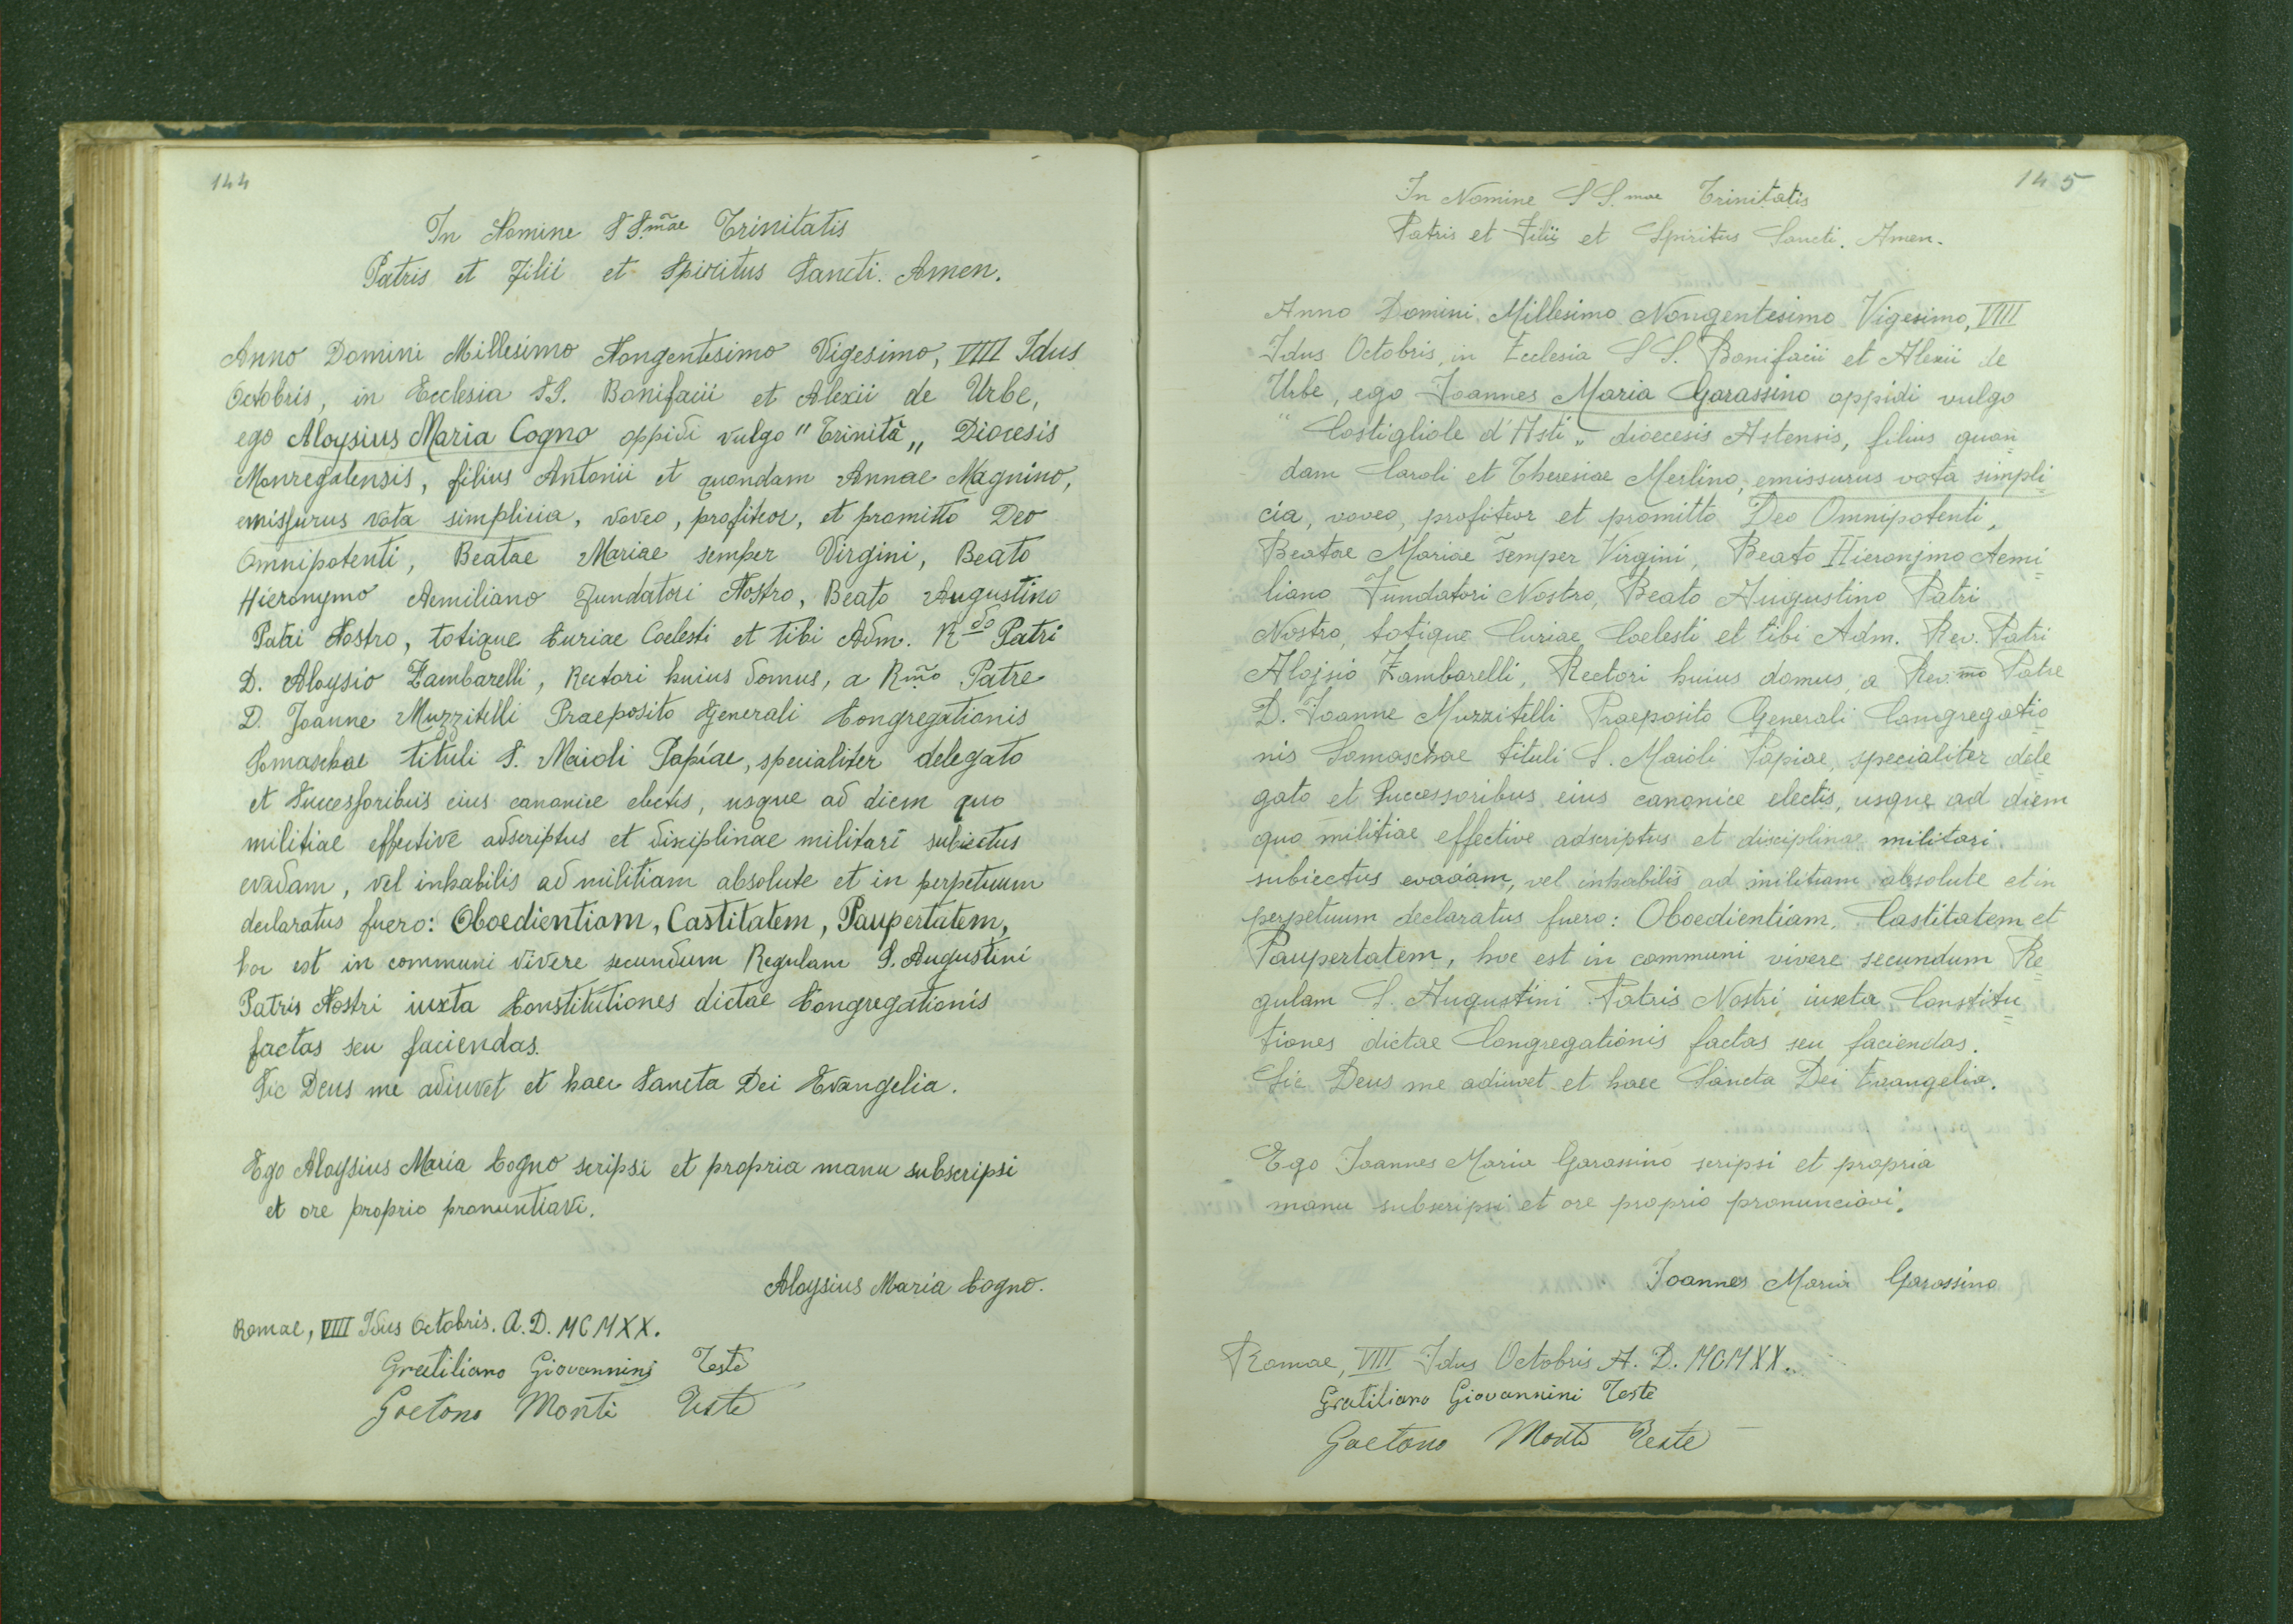 144
In Nomine SS.mae Trinitatis
Patris et Filii et Spiritus Sancti. Amen.
Anno Domini Millesimo Nongentesimo Vigesimo, VIII Idus
Octobris, in Ecclesia SS. Bonifacii et Alexii de Urbe,
ego Aloysius Maria Cogno oppidi vulgo "Trinità„ Diocesis
Monregalensis, filius Antonii et quondam Annae Magnino,
emissurus vota simplicia, voveo, profiteor, et promitto Deo
Omnipotenti, Beatae Mariae semper Virgini, Beato
Hieronymo Aemiliano Fundatori Nostro, Beato Augustino
Patri Nostro, totique Curiae Coelesti et tibi Adm. Rdo Patri
D. Aloysio Zambarelli, Rectori huius domus, a Rmo Patre
D. Joanne Muzzitelli Praeposito Generali Congregationis
Somaschae tituli S. Maioli Papiae, specialiter delegato
et Successoribus eius canonice electis, usque ad diem quo
militiae effective adscriptus et disciplinae militari subiectus
evadam, vel inhabilis ad militiam absolute et in perpetuum
declaratus fuero: Oboedientiam, Castitatem, Paupertatem,
hoc est in communi vivere secundum Regulam S. Augustini
Patris Nostri iuxta Constitutiones dictae Congregationis
factas seu faciendas.
Sic Deus me adiuvet et haec Sancta Dei Evangelia.
Ego Aloysius Maria Cogno scripsi et propria manu subscripsi
et ore proprio pronuntiavi.
Aloysius Maria Cogno.
Romae, VIII Idus Octobris. A.D. MCMXX.
Gratiliano Giovannini Teste
Gaetano Monti Teste
145
In Nomine SS.mae Trinitatis
Patris et Filii et Spiritus Sancti. Amen.
Anno Domini Millesimo Nongentesimo Vigesimo, VIII
Idus Octobris, in Ecclesia SS. Bonifacii et Alexii de
Urbe, ego Joannes Maria Garassino oppidi vulgo
"Costigliole d'Asti„ dioecesis Astensis, filius quon=
dam Caroli et Theresiae Merlino, emissurus vota simpli=
cia, voveo, profiteor et promitto Deo Omnipotenti,
Beatae Mariae semper Virgini, Beato Hieronjmo Aemi=
liano Fundatori Nostro, Beato Augustino Patri
Nostro, totique Curiae Coelesti et tibi Adm. Rev. Patri
Alojsio Zambarelli, Rectori huius domus, a Rev.mo Patre
D. Joanne Muzzitelli Praeposito Generali Congregatio=
nis Somaschae tituli S. Maioli Papiae, specialiter dele=
gato et Successoribus eius canonice electis, usque ad diem
quo militiae effective adscriptus et disciplinae militari
subiectus evadam, vel inhabilis ad militiam absolute et in
perpetuum declaratus fuero: Oboedientiam, Castitatem et
Paupertatem, hoc est in communi vivere secundum Re=
gulam S. Augustini Patris Nostri, iuxta Constitu=
tiones dictae Congregationis factas seu faciendas.
Sic Deus me adiuvet et haec Sancta Dei Evangelia.
Ego Joannes Maria Garassino scripsi et propria
manu subscripsi et ore proprio pronunciavi.
Joannes Maria Garassino
Romae, VIII Idus Octobris A. D. MCMXX.
Gratiliano Giovannini Teste
Gaetano Monti Teste